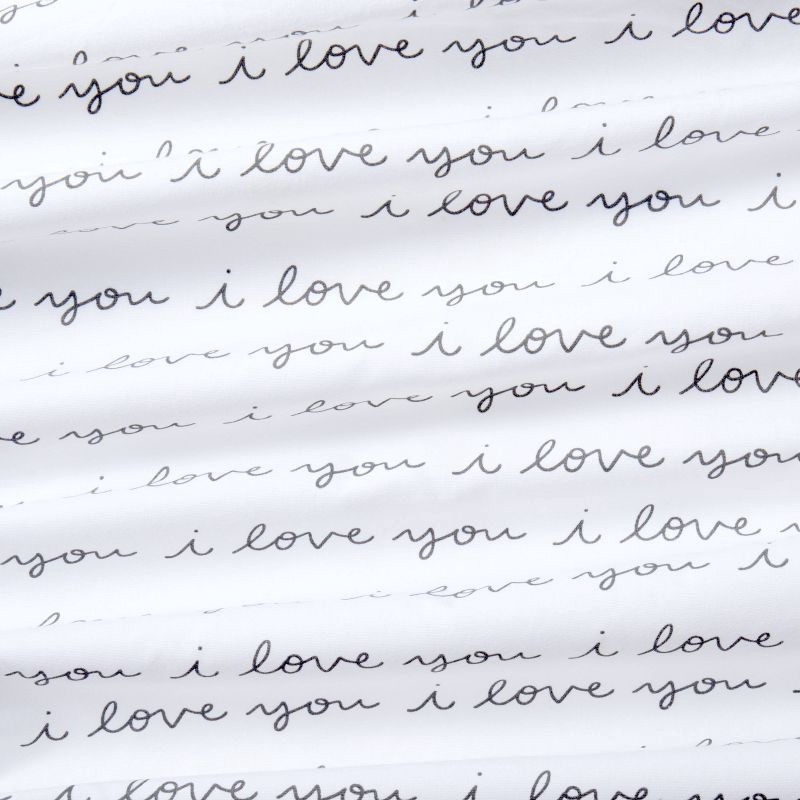 you i love you i love
you i love you i love
you i love you i
you i love you i love
i love you i love you
you i love you i love
i love you i love you
you i love you i love
i love you i
you i love you i love
i love you i love you
i love you i love you